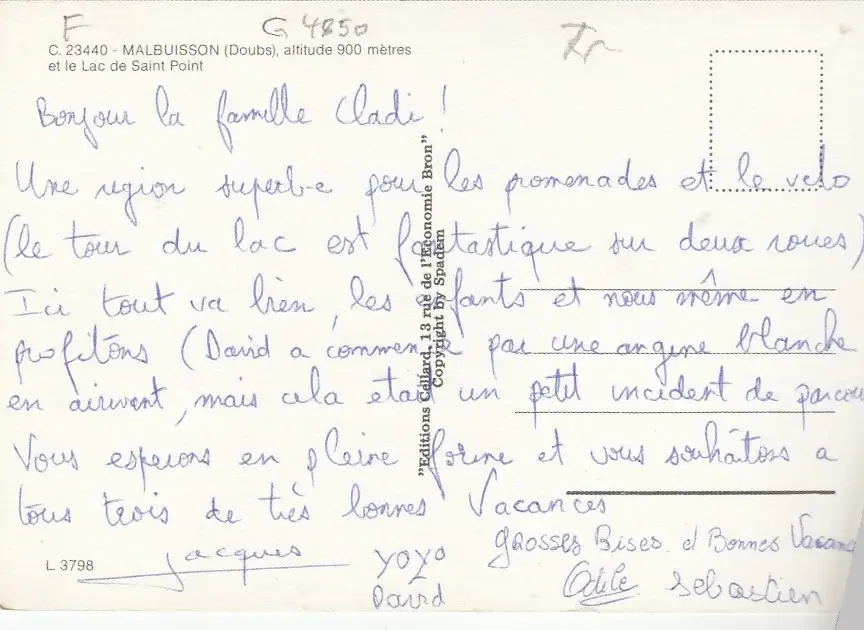 F G 4850
C. 23440 - MALBUISSON (Doubs), altitude 900 mètres
et le Lac de Saint Point
Bonjour la famille Cladi !
Une region superbe pour les promenades et le velo
(le tour du lac est fantastique sur deux roues)
Ici tout va bien, les enfants et nous même en
profitons (David a commencé par une angine blanche
en arrivent, mais cela etait un petit incident de parcou
Vous esperons en pleine forme et vous souhaitons a
tous trois de très bonnes Vacances
Jacques
YOYO
David
GROSSES Bises et Bonnes Vacances
Odile Sebastien
L 3798
"Editions Cellard, 13 rue de l'Economie Bron"
Copyright by Spadem